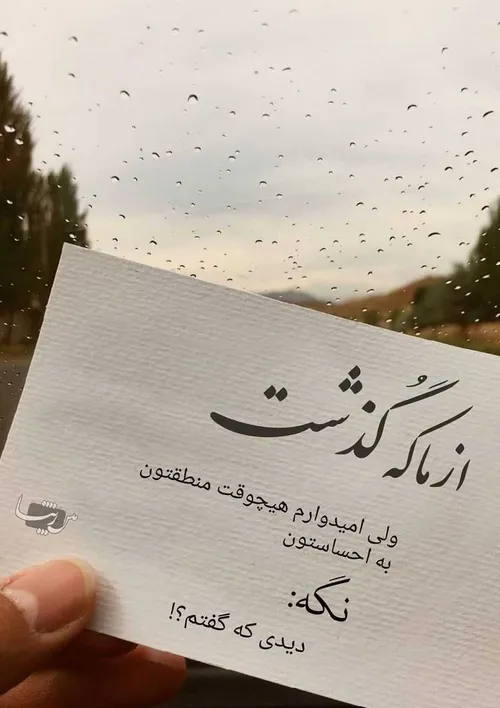 از ما که گذشت
ولی امیدوارم هیچوقت منطقتون
به احساستون
نگه:
دیدی که گفتم؟!